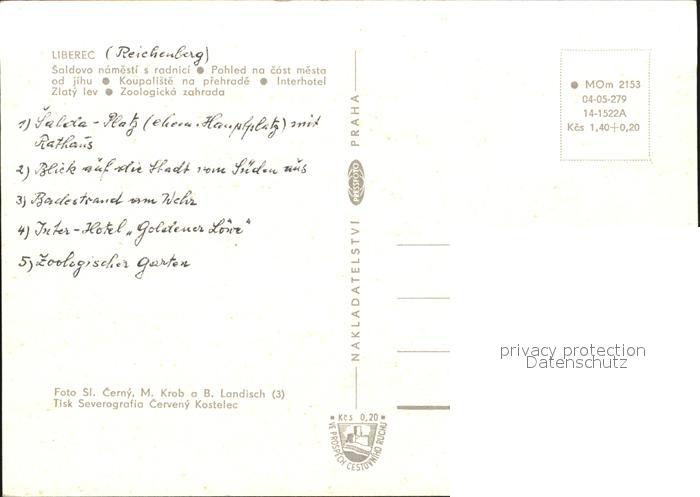 LIBEREC (Reichenberg)
Šaldovo náměstí s radnicí ● Pohled na část města
od jihu ● Koupaliště na přehradě ● Interhotel
Zlatý lev ● Zoologická zahrada
1) Šalda-Platz (ehem. Hauptplatz) mit
Rathaus
2) Blick auf die Stadt vom Süden aus
3) Badestrand am Wehr
4) Inter-Hotel „Goldener Löwe"
5) Zoologischer Garten
Foto Sl. Černý, M. Krob a B. Landisch (3)
Tisk Severografia Červený Kostelec
NAKLADATELSTVÍ PRESSFOTO PRAHA
Kčs 0,20
VE PROSPĚCH CESTOVNÍHO RUCHU
● MOm 2153
04-05-279
14-1522A
Kčs 1,40+0,20
privacy protection
Datenschutz